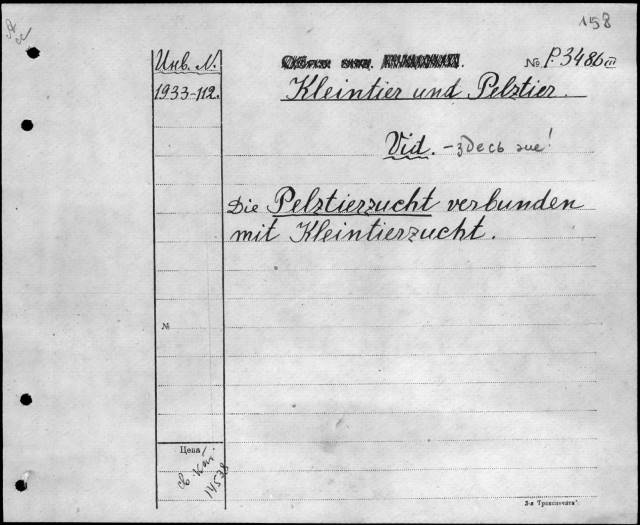 158
Инв. N.
№ P.3486 III
1933-112.
Kleintier und Pelztier.
Vid. - здесь же!
Die Pelztierzucht verbunden
mit Kleintierzucht.
№
Цена
14578
3-я Транспечать